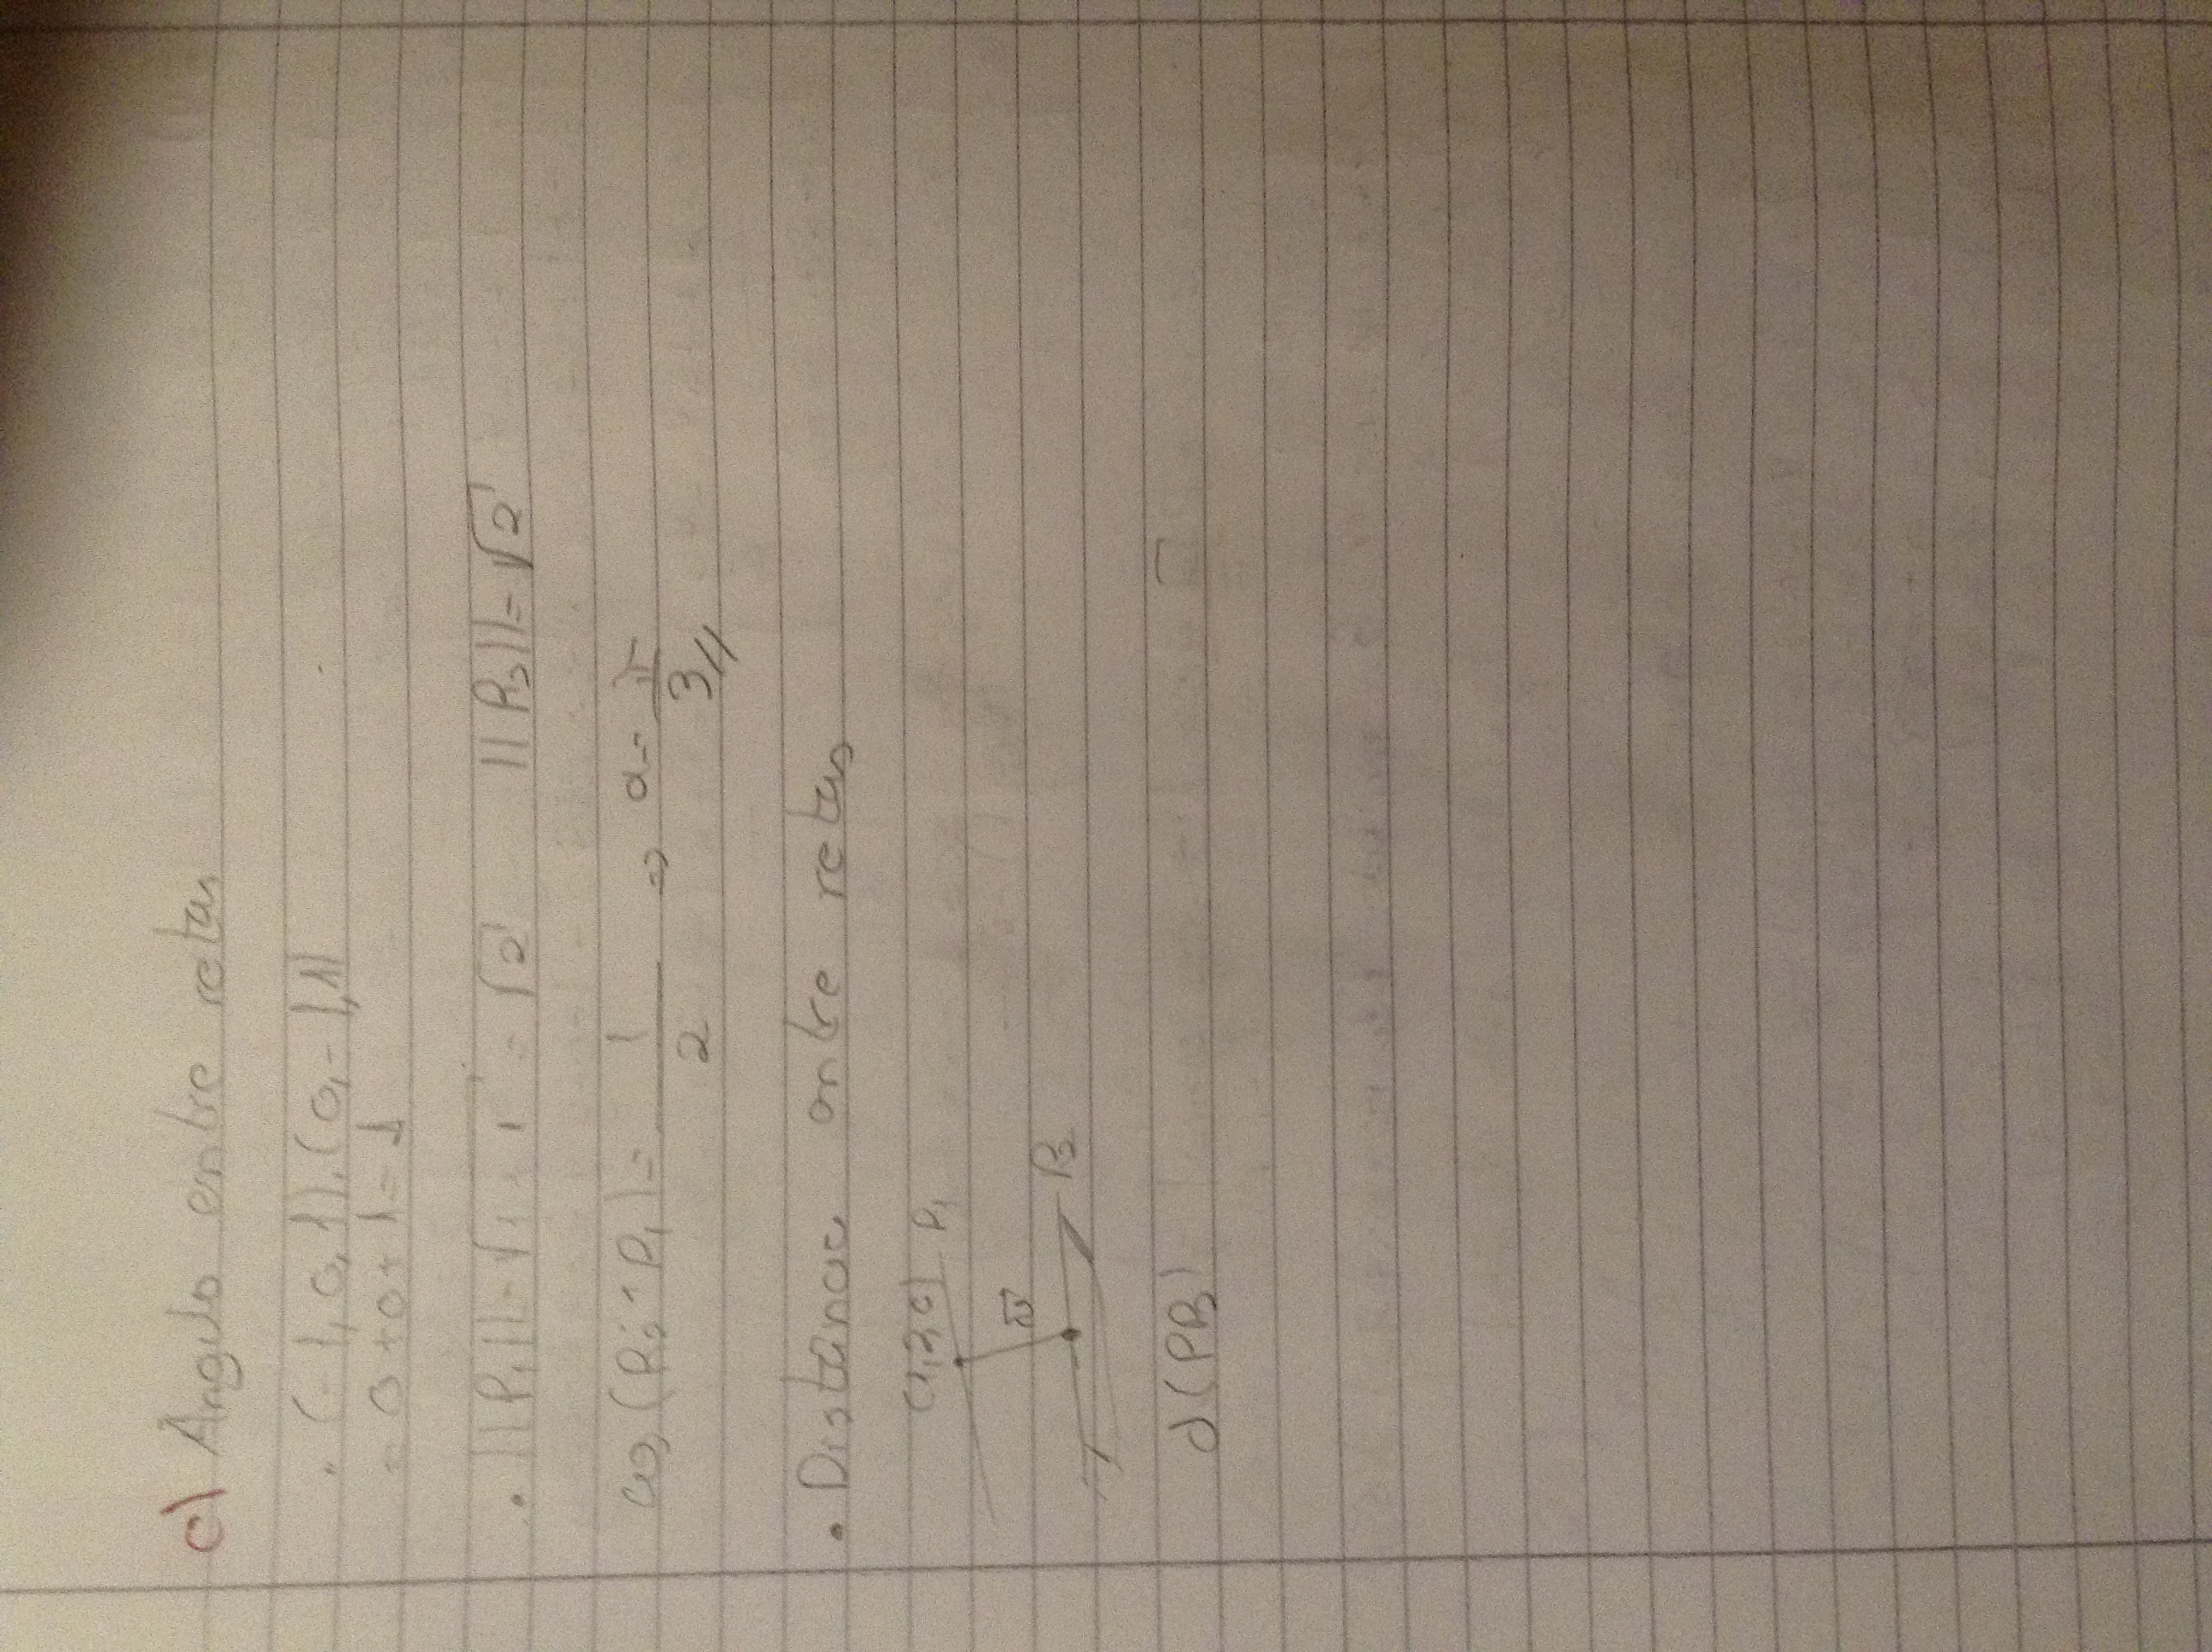 c) Ângulo entre retas
• (-1, 0, 1).(0, -1, 1)
= 0 + 0 + 1 = 1
• ||P₁|| = √1 + 1 = √2 ||P₂|| = √2
cos (P₂^P₁) = 1/2 => α = π/3//
• Distância entre retas
(1,2,0) P₁
P₂
d(PB)